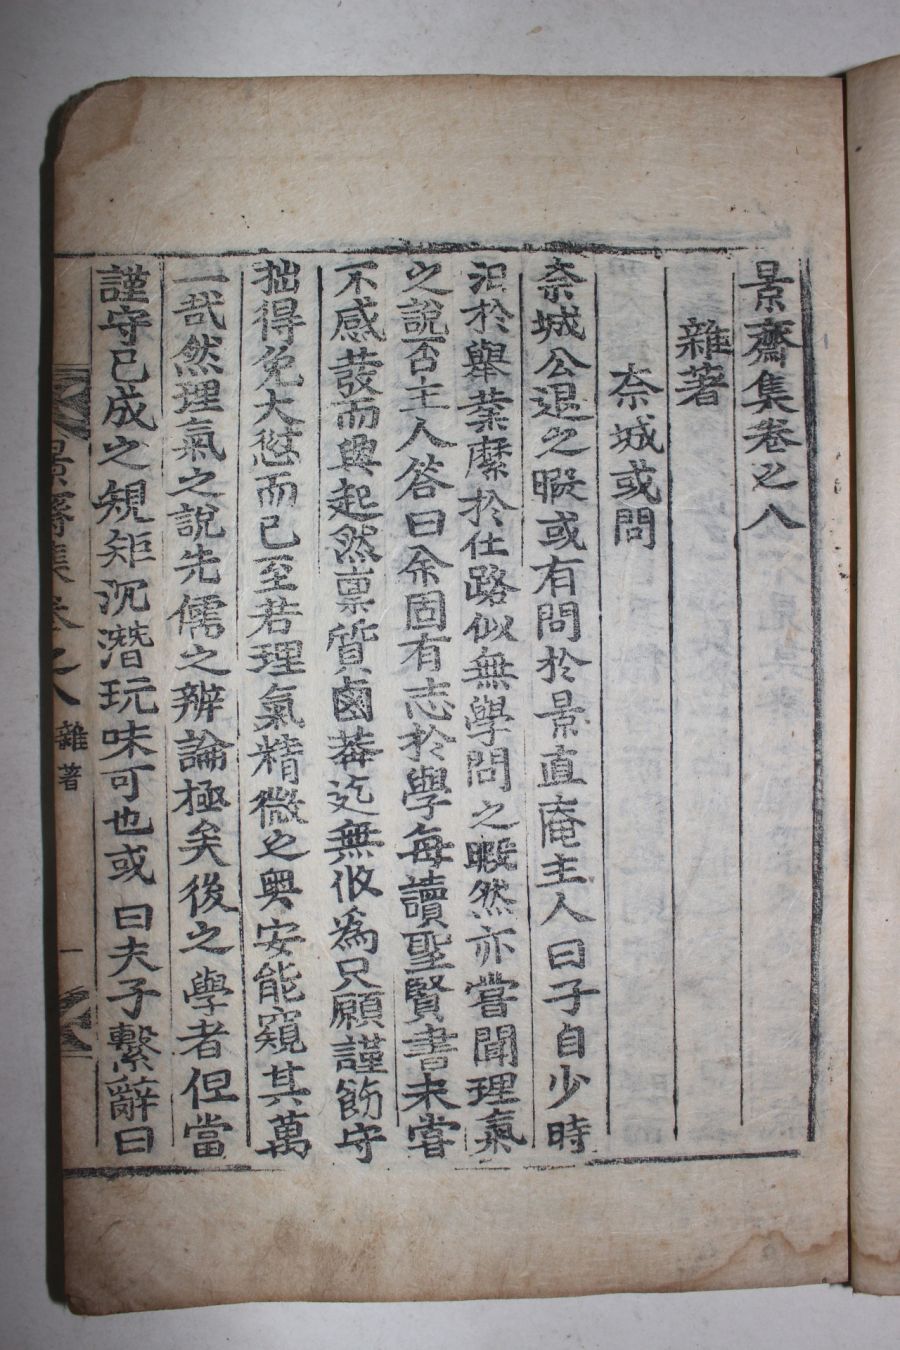 景齋集卷之八
雜著
奈城或問
奈城公退之暇或有問於景直庵主人曰子自少時
汩於舉業縻於仕路似無學問之暇然亦嘗聞理氣
之說否主人答曰余固有志於學每讀聖賢書未嘗
不感發而興起然禀質鹵莽迄無攸爲只願謹飭守
拙得免大愆而已至若理氣精微之奧安能窺其萬
一哉然理氣之說先儒之辨論極矣後之學者但當
謹守已成之規矩沉潛玩味可也或曰夫子繫辭曰
景齋集卷之八 雜著 一